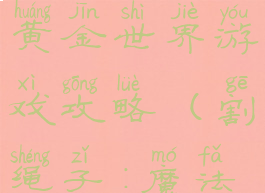 huáng jīn shì jiè yóu
黄金世界游
xì gōng lüè gē
戏攻略（割
shéng zǐ mó fǎ
绳子：魔法